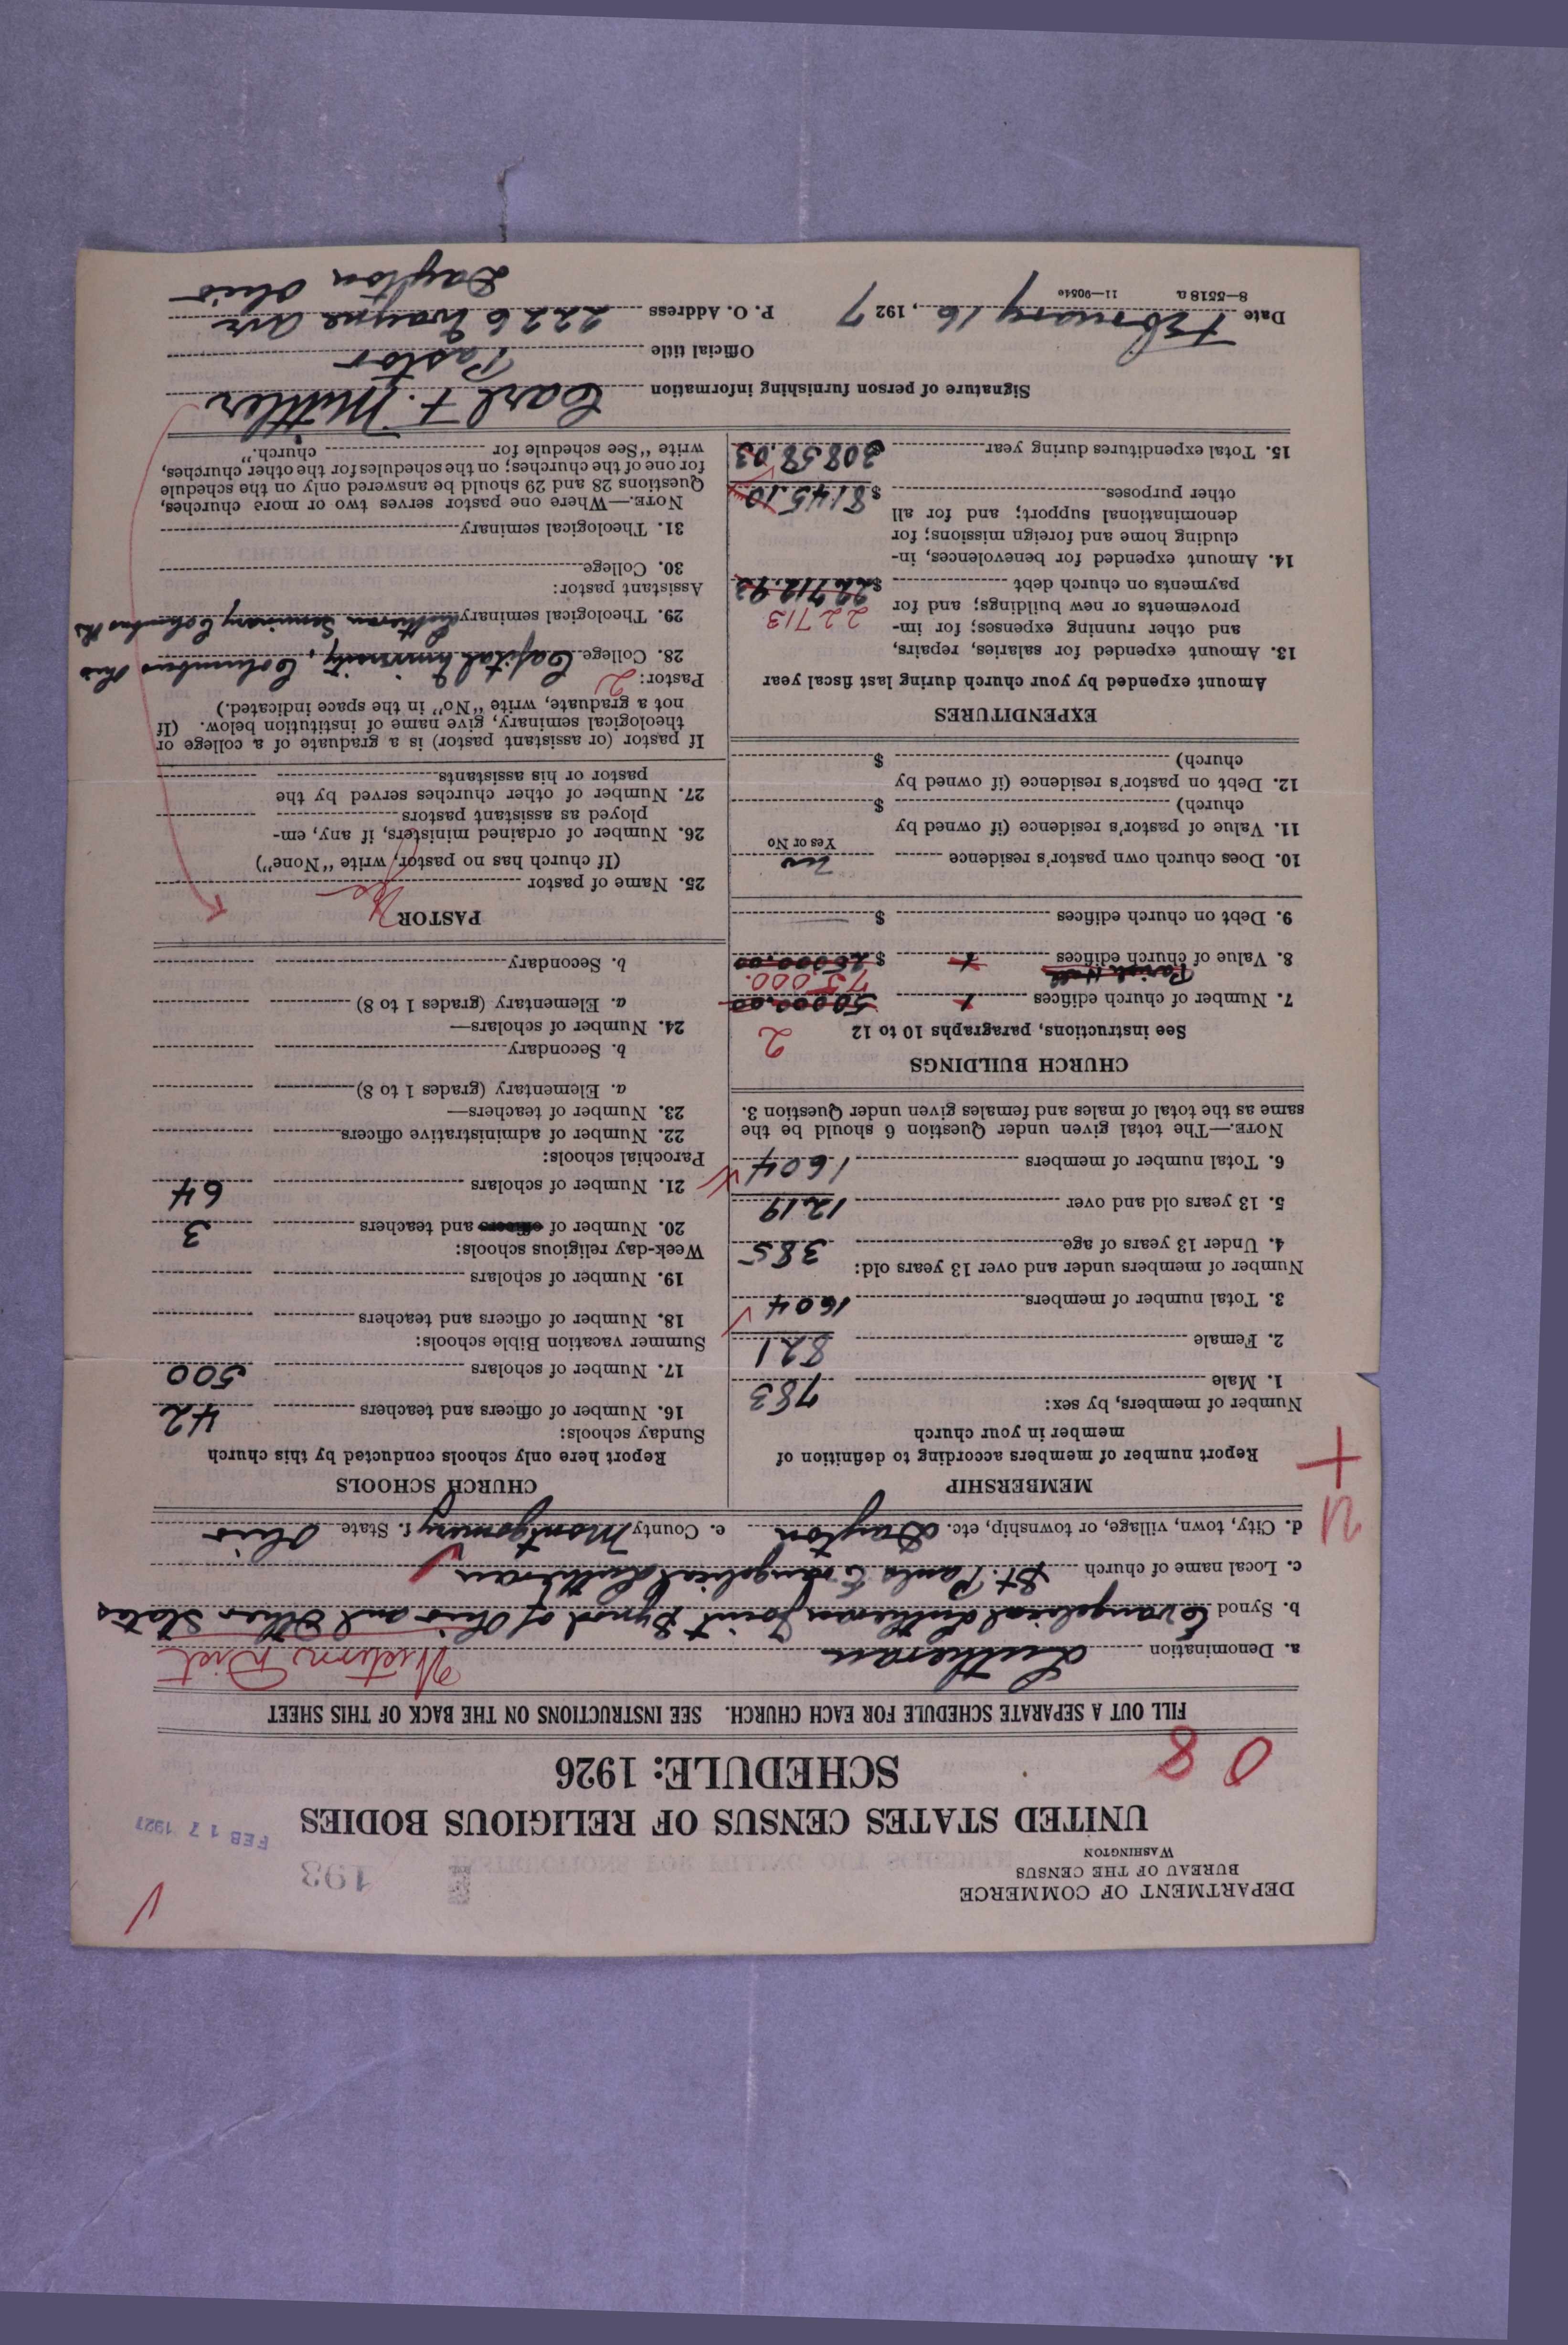 DEPARTMENT OF COMMERCE
BUREAU OF THE CENSUS
WASHINGTON
193
FEB 17 1927
UNITED STATES CENSUS OF RELIGIOUS BODIES
SCHEDULE: 1926
0 8
FILL OUT A SEPARATE SCHEDULE FOR EACH CHURCH. SEE INSTRUCTIONS ON THE BACK OF THIS SHEET
a. Denomination Lutheran Western Dist
b. Synod Evangelical Lutheran Joint Synod of Ohio and Other States
c. Local name of church St. Pauls Evangelical Lutheran
d. City, town, village, or township, etc. Dayton e. County Montgomery f. State Ohio
MEMBERSHIP
Report number of members according to definition of
member in your church
Number of members, by sex:
1. Male 783
2. Female 821
3. Total number of members 1604
Number of members under and over 13 years old:
4. Under 13 years of age 385
5. 13 years old and over 1219
6. Total number of members 1604
NOTE.—The total given under Question 6 should be the
same as the total of males and females given under Question 3.
CHURCH BUILDINGS
See instructions, paragraphs 10 to 12 2
7. Number of church edifices 1 50000.00
Parish Hall 75,000.
8. Value of church edifices 1 $25000.00
9. Debt on church edifices $
10. Does church own pastor's residence no
Yes or No
11. Value of pastor's residence (if owned by
church) $
12. Debt on pastor's residence (if owned by
church) $
EXPENDITURES
Amount expended by your church during last fiscal year
13. Amount expended for salaries, repairs,
and other running expenses; for im-
provements or new buildings; and for 22713
payments on church debt $22712.93
14. Amount expended for benevolences, in-
cluding home and foreign missions; for
denominational support; and for all
other purposes $8145.10
15. Total expenditures during year 30858.03
CHURCH SCHOOLS
Report here only schools conducted by this church
Sunday schools:
16. Number of officers and teachers 42
17. Number of scholars 500
Summer vacation Bible schools:
18. Number of officers and teachers
19. Number of scholars
Week-day religious schools:
20. Number of officers and teachers 3
21. Number of scholars 64
Parochial schools:
22. Number of administrative officers
23. Number of teachers—
a. Elementary (grades 1 to 8)
b. Secondary
24. Number of scholars—
a. Elementary (grades 1 to 8)
b. Secondary
PASTOR
25. Name of pastor
(If church has no pastor, write "None")
26. Number of ordained ministers, if any, em-
ployed as assistant pastors
27. Number of other churches served by the
pastor or his assistants
If pastor (or assistant pastor) is a graduate of a college or
theological seminary, give name of institution below. (If
not a graduate, write "No" in the space indicated.)
Pastor: 2
28. College Capital University, Columbus Ohio
29. Theological seminary Lutheran Seminary Columbus Oh
Assistant pastor:
30. College
31. Theological seminary
NOTE.—Where one pastor serves two or more churches,
Questions 28 and 29 should be answered only on the schedule
for one of the churches; on the schedules for the other churches,
write "See schedule for church."
Signature of person furnishing information Carl F. Mittler
Official title Pastor
Date February 16, 1927 P. O. Address 2226 Wayne Ave
Dayton Ohio
8—5518 a 11—9054e